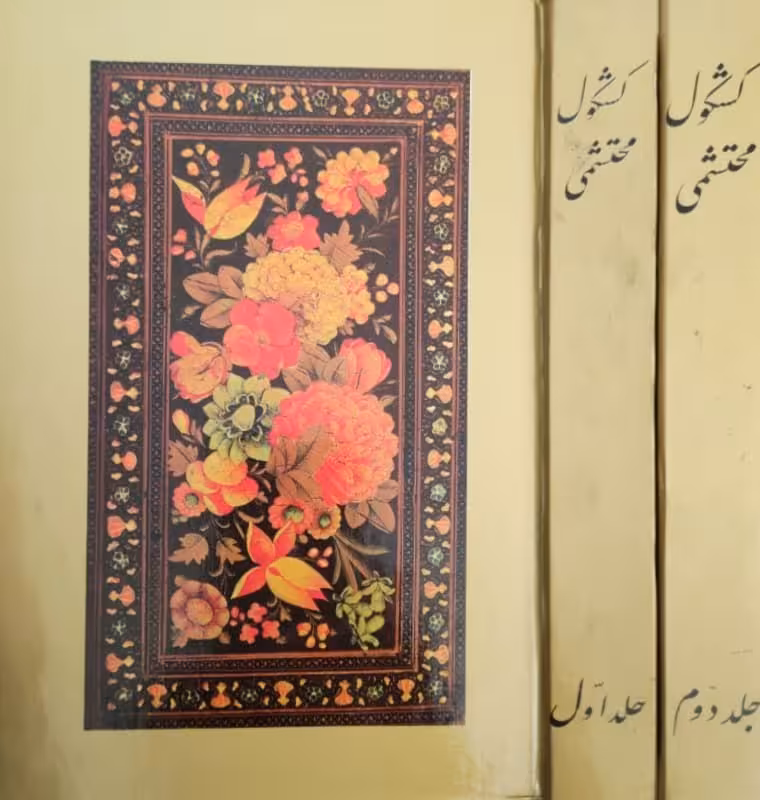 کشکول
محتشمی
جلد اوّل
کشکول
محتشمی
جلد دوم